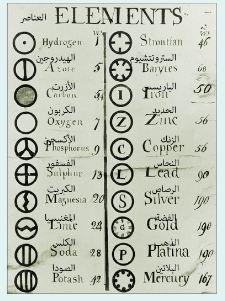 ELEMENTS
العناصر
Hydrogen 1
الهيدروجين
Azote 5
الأزوت
Carbon 5
الكربون
Oxygen 7
الأكسجين
Phosphorus 9
الفسفور
Sulphur 13
الكبريت
Magnesia 20
المغنيسيا
Lime 24
الكلس
Soda 28
الصودا
Potash 42
Strontian 46
السترونتشيوم
Barytes 68
I Iron 50
الحديد
Z Zinc 56
الزنك
C Copper 56
النحاس
L Lead 90
الرصاص
S Silver 190
الفضة
Gold 190
الذهب
P Platina 190
البلاتين
Mercury 167